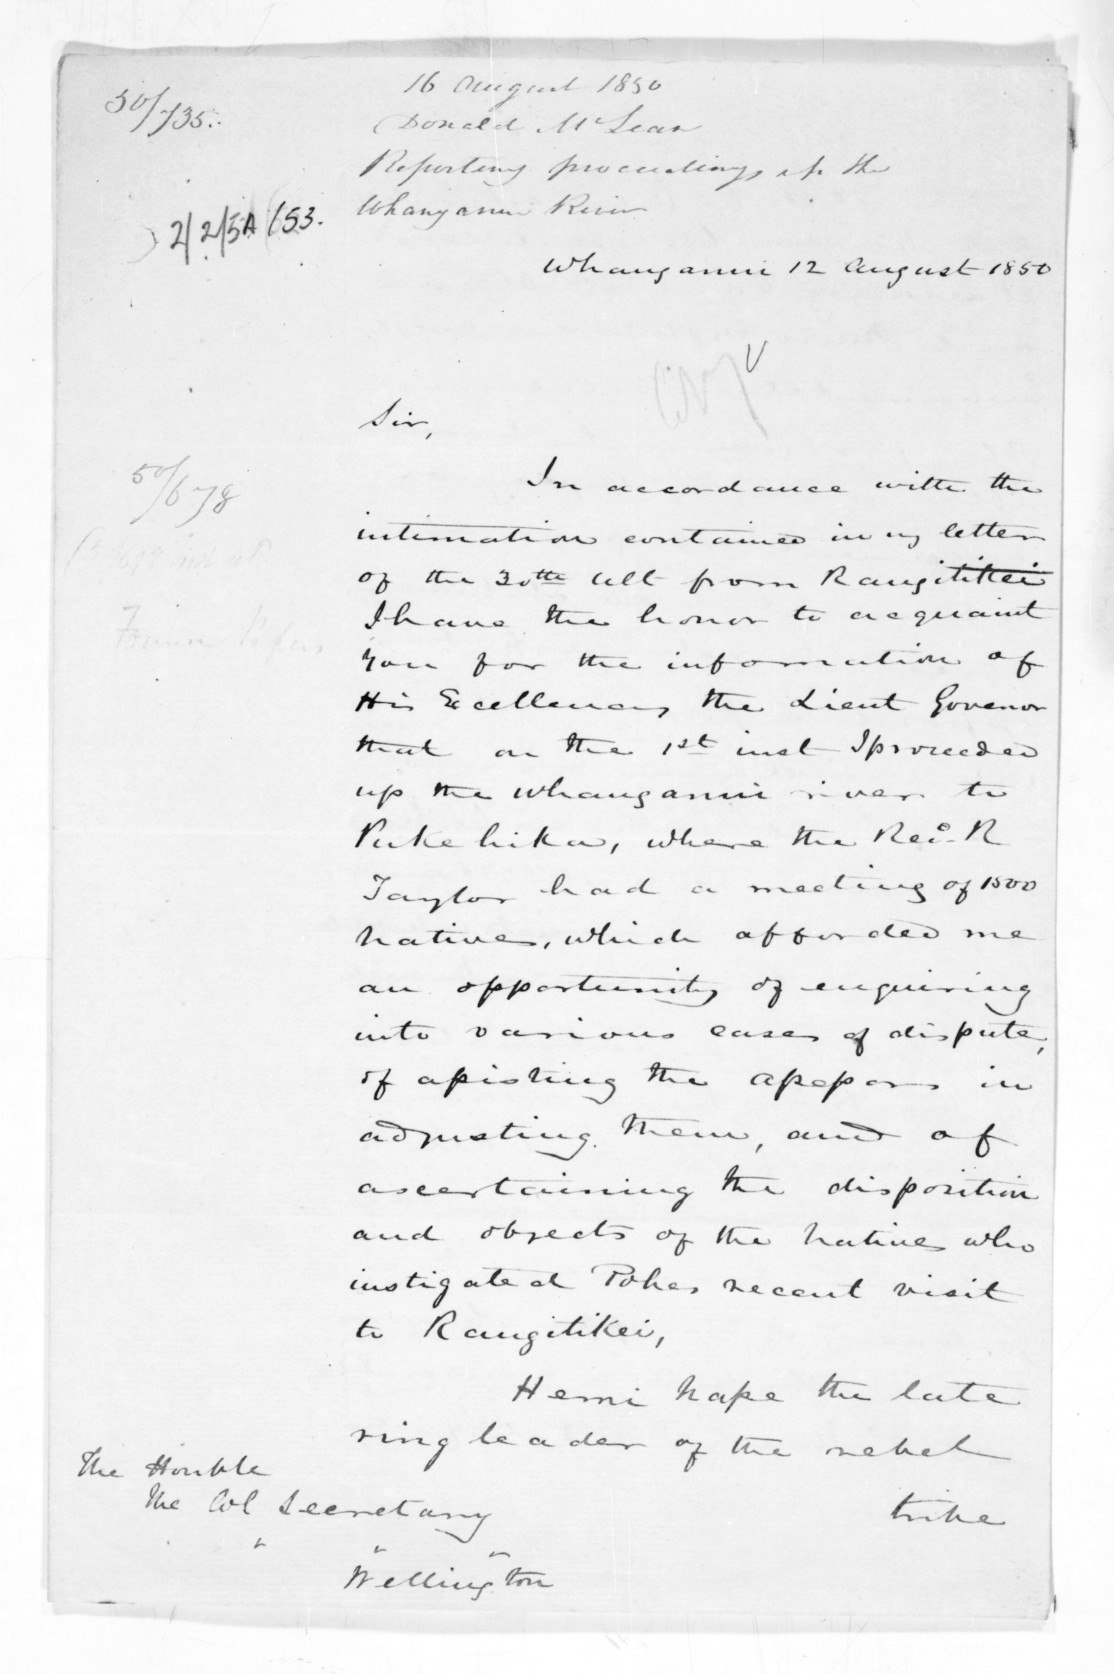 50/735.
16 August 1850
Donald McLean
Reporting proceedings up the
Whanganui River
2/2/5A/53.
Whanganui 12 August 1850
Sir,
50/678
In accordance with the
intimation contained in my letter
of the 30th ult from Rangitikei
I have the honor to acquaint
you for the information of
His Excellency the Lieut Govenor
that on the 1st inst I proceeded
up the Whanganui river to
Pukehika, where the Revd. R
Taylor had a meeting of 1500
natives, which afforded me
an opportunity of enquiring
into various cases of dispute,
of assisting the assessors in
adjusting them, and of
ascertaining the disposition
and objects of the natives who
instigated Pohes recent visit
to Rangitikei,
Hemi hape the late
ringleader of the rebel
tribe
The Honble
The Col Secretary
" " "
Wellington